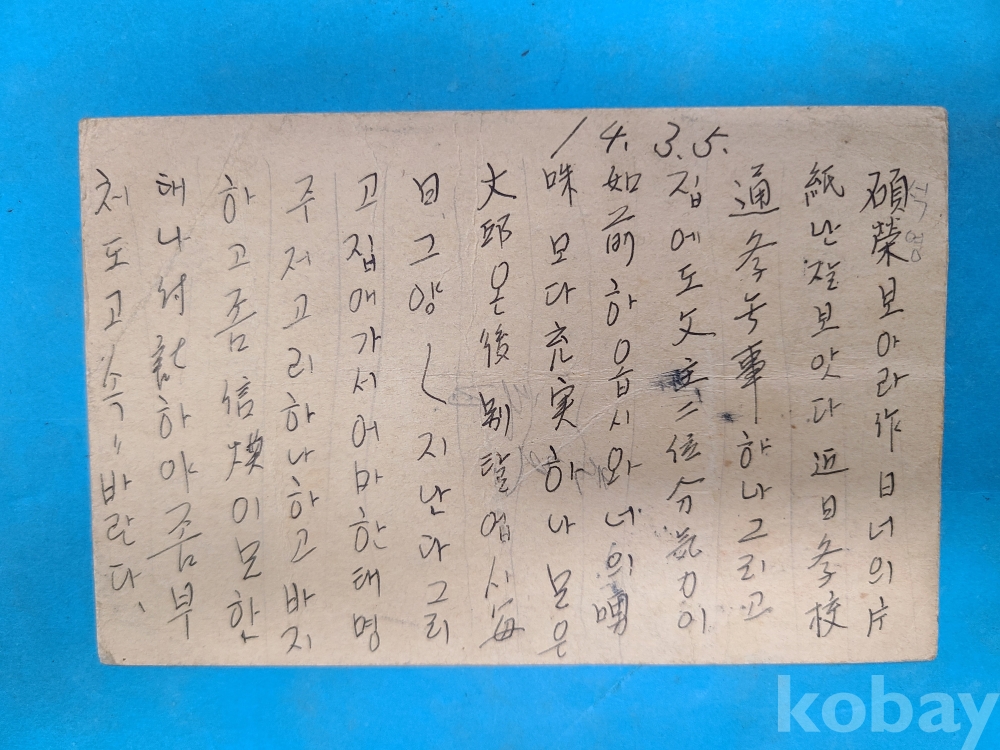 14.3.5.
碩榮보아라作日너의片
석영
紙난잘보앗다近日冬校
通冬두事하나그리고
집에도父主二位分気力이
如前하읍시와너의甥
妹모다充実하나몬은
大邱온後別탈업시每
日그양지난다그리
고집애가서어마한태명
주저고리하나하고바지
하고좀信煥이모한
태나付託하야좀부
처도고속〃바란다、
kobay